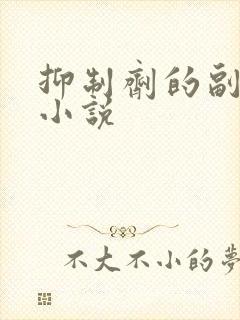 抑制剂的副
小説
不大不小的夢